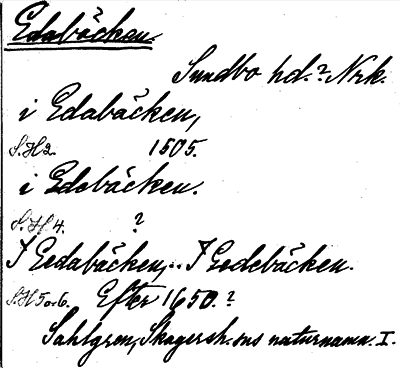 Edabäcken.
Sundbo hd.? Nrk.
i Edabäcken,
S.H 2. 1505.
i Edebäcken.
S.H 4. ?
I Eedabäcken,.. I Eedebäcken.
S.H 5 o. 6. Efter 1650.?
Sahlgren, Skagersh:ns naturnamn. I.